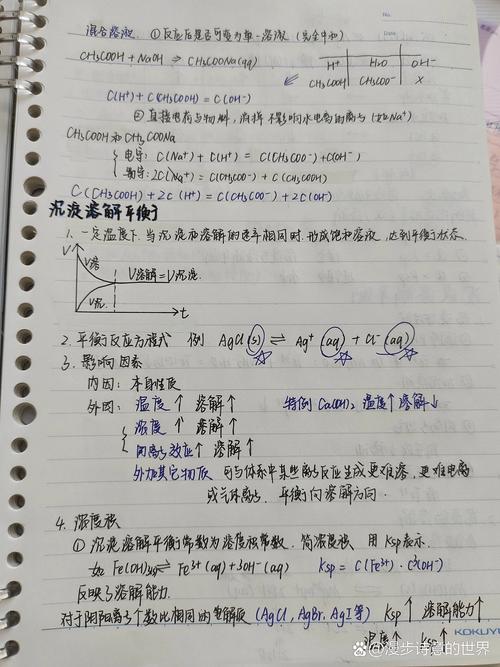 No.
Date
混合溶液. ①反应后是否可变为单一溶液 (完全中和)
CH₃COOH + NaOH ⇌ CH₃COONa(aq)
H⁺ H₂O OH⁻
CH₃COOH CH₃COO⁻ ×
C(H⁺) + C(CH₃COOH) = C(OH⁻)
②直接电荷与物料, 消掉不影响水电离的离子 (如Na⁺)
CH₃COOH 和 CH₃COONa
电守: C(Na⁺) + C(H⁺) = C(CH₃COO⁻) + C(OH⁻)
物守: 2C(Na⁺) = C(CH₃COO⁻) + C(CH₃COOH)
C(CH₃COOH) + 2C(H⁺) = C(CH₃COO⁻) + 2C(OH⁻)
沉淀溶解平衡
1. 一定温度下. 当沉淀和溶解的速率相同时. 形成饱和溶液, 达到平衡状态.
V
V溶
V溶解 = V沉淀.
V沉
t
2. 平衡反应方程式 例 AgCl(s) ⇌ Ag⁺(aq) + Cl⁻(aq)
3. 影响因素
内因: 本身性质
外因: 温度↑ 溶解↑ 特例 Ca(OH)₂ 温度↑溶解↓
浓度↑ 溶解↑
同离子效应↑ 溶解↑
外加其它物质 可与体系中某些离子反应生成更难溶, 更难电离
或气体离子. 平衡向溶解方向.
4. 溶度积
①沉淀溶解平衡常数为溶度积常数. 简溶度积 用Ksp表示.
如 Fe(OH)₃(s) ⇌ Fe³⁺(aq) + 3OH⁻(aq) Ksp = C(Fe³⁺)·C³(OH⁻)
反映了溶解能力.
对于阴阳离子个数比相同的电解质 (AgCl, AgBr, AgI等) Ksp↑ 溶解能力↑
温度↑ Ksp↑
KOKUYO
漫步诗意的世界